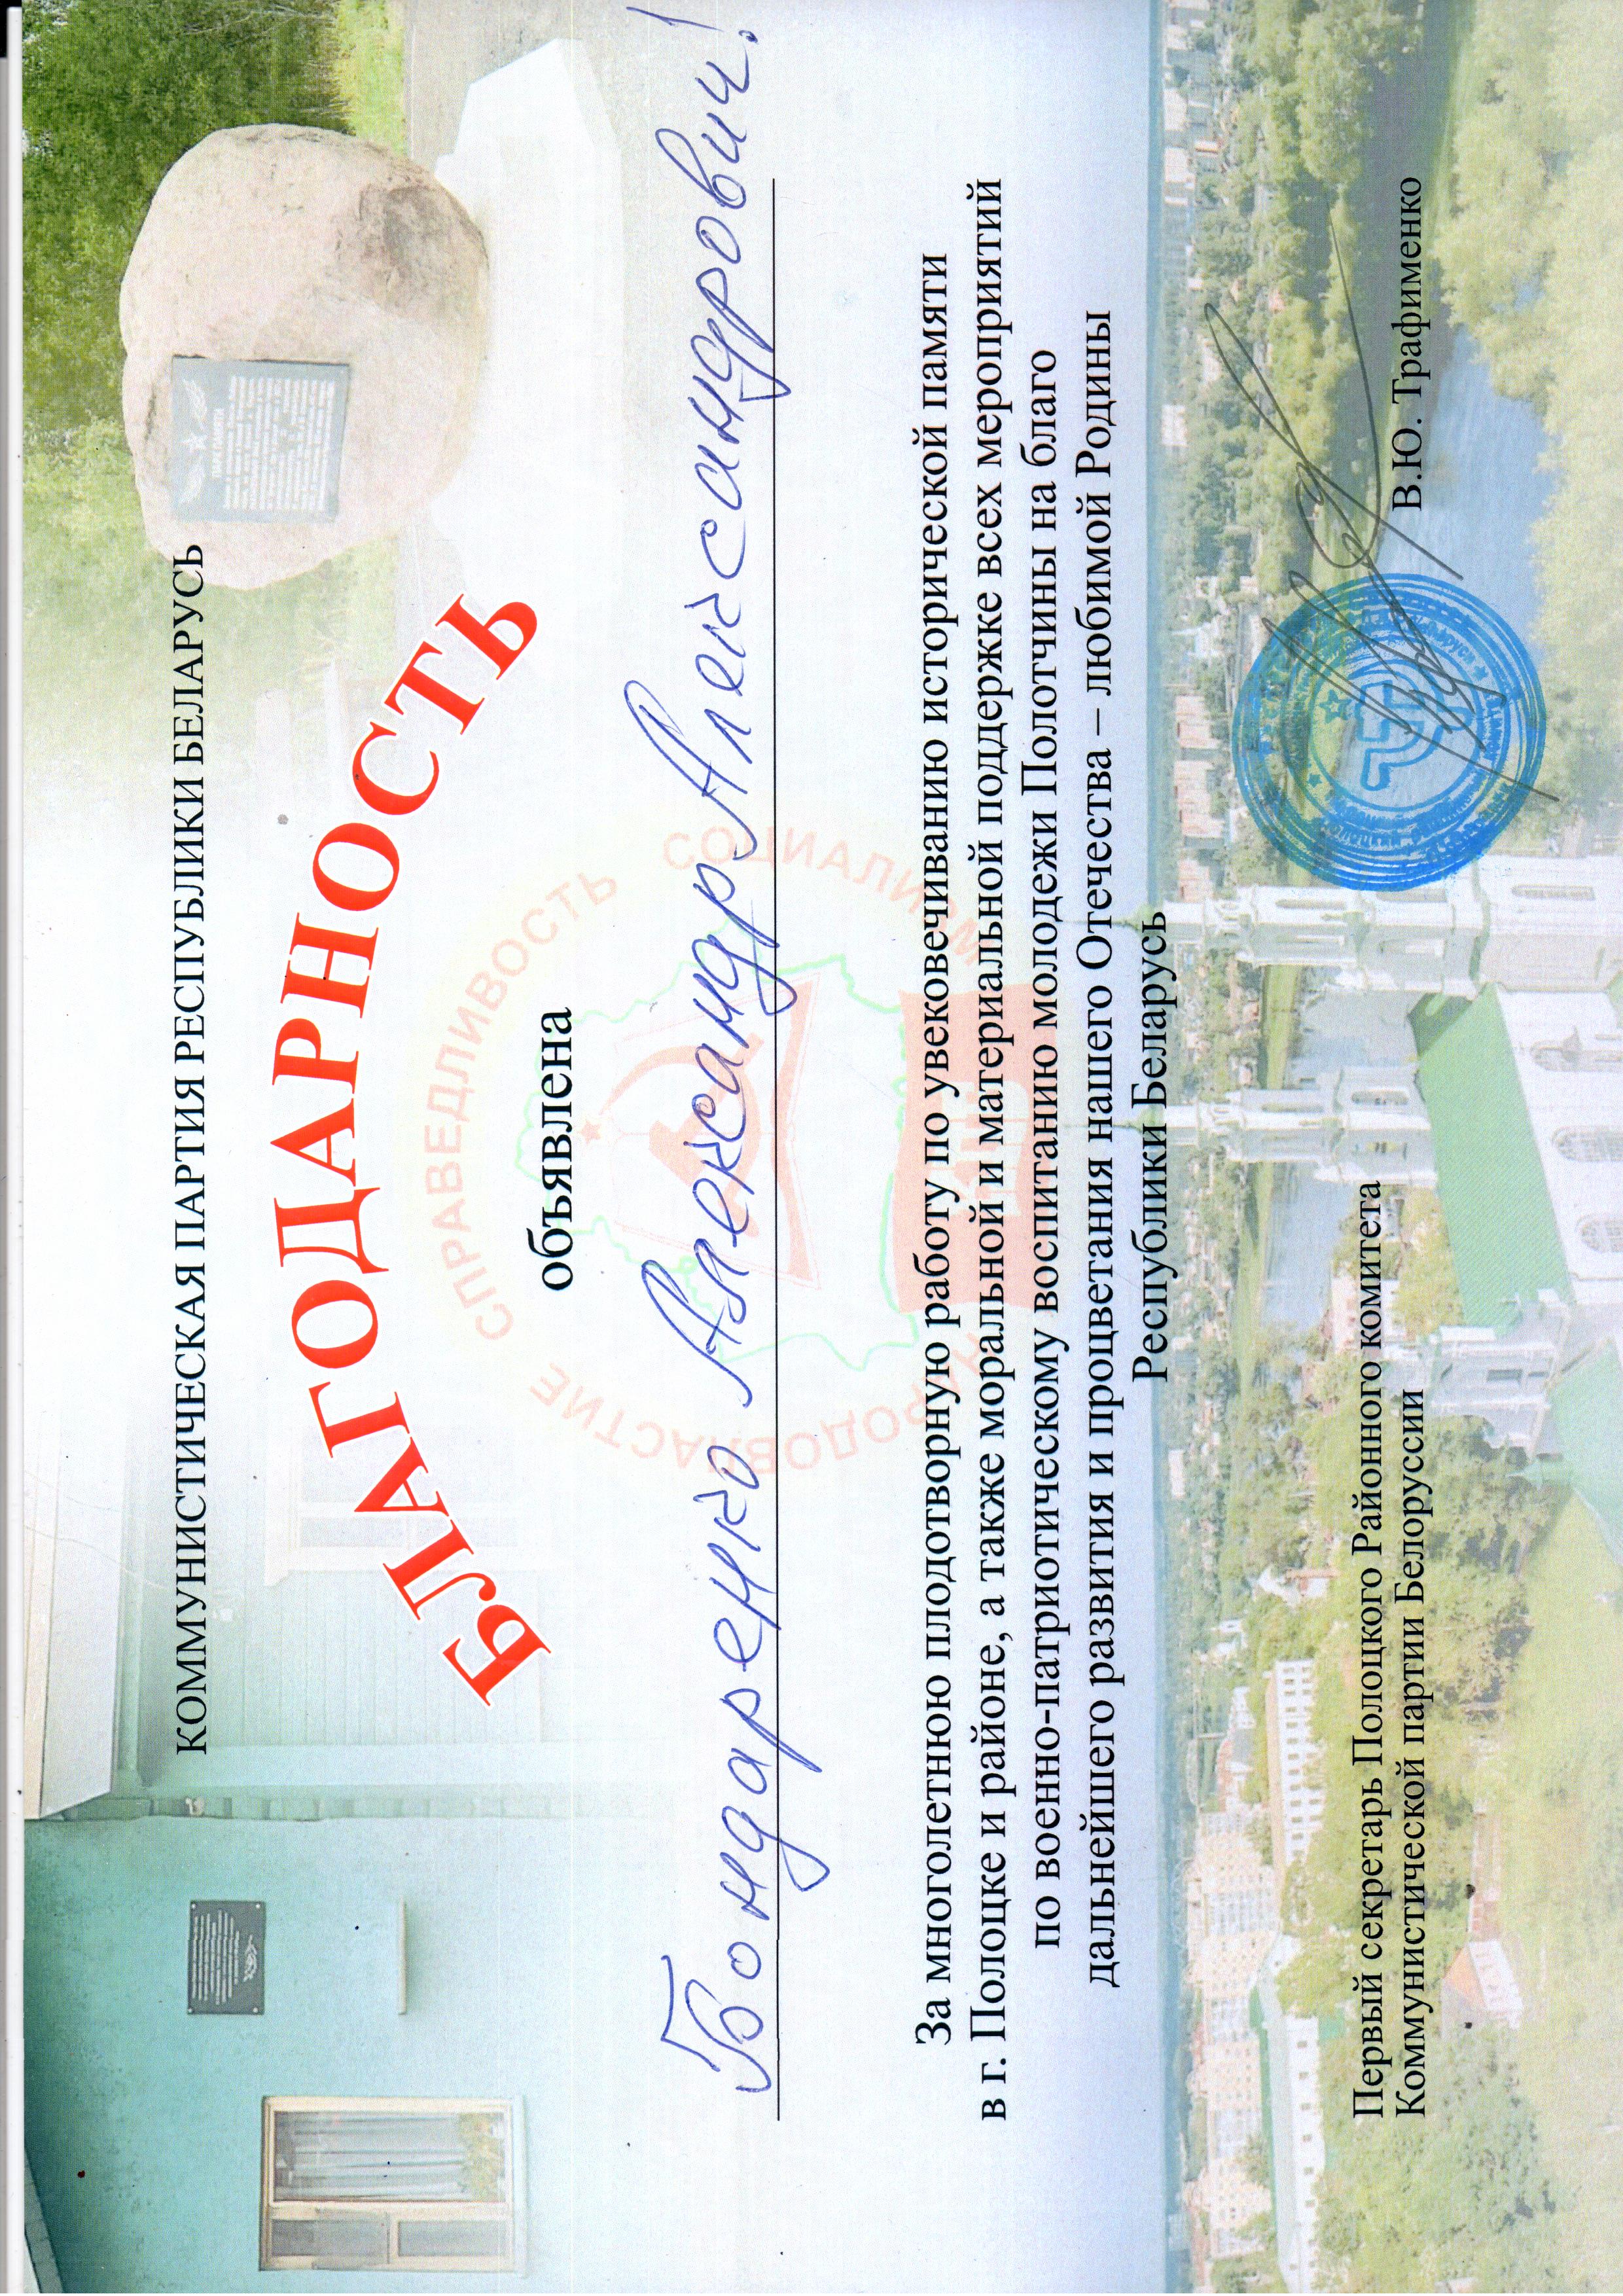 КОММУНИСТИЧЕСКАЯ ПАРТИЯ РЕСПУБЛИКИ БЕЛАРУСЬ
ПАРК ПАМЯТИ
БЛАГОДАРНОСТЬ
НАРОДОВЛАСТИЕ СПРАВЕДЛИВОСТЬ СОЦИАЛИЗМ
объявлена
Бондаренко Александр Александрович!
За многолетнюю плодотворную работу по увековечиванию исторической памяти
в г. Полоцке и районе, а также моральной и материальной поддержке всех мероприятий
по военно-патриотическому воспитанию молодежи Полотчины на благо
дальнейшего развития и процветания нашего Отечества – любимой Родины
Республики Беларусь
Первый секретарь Полоцкого Районного комитета
Коммунистической партии Белоруссии
В.Ю. Трафименко